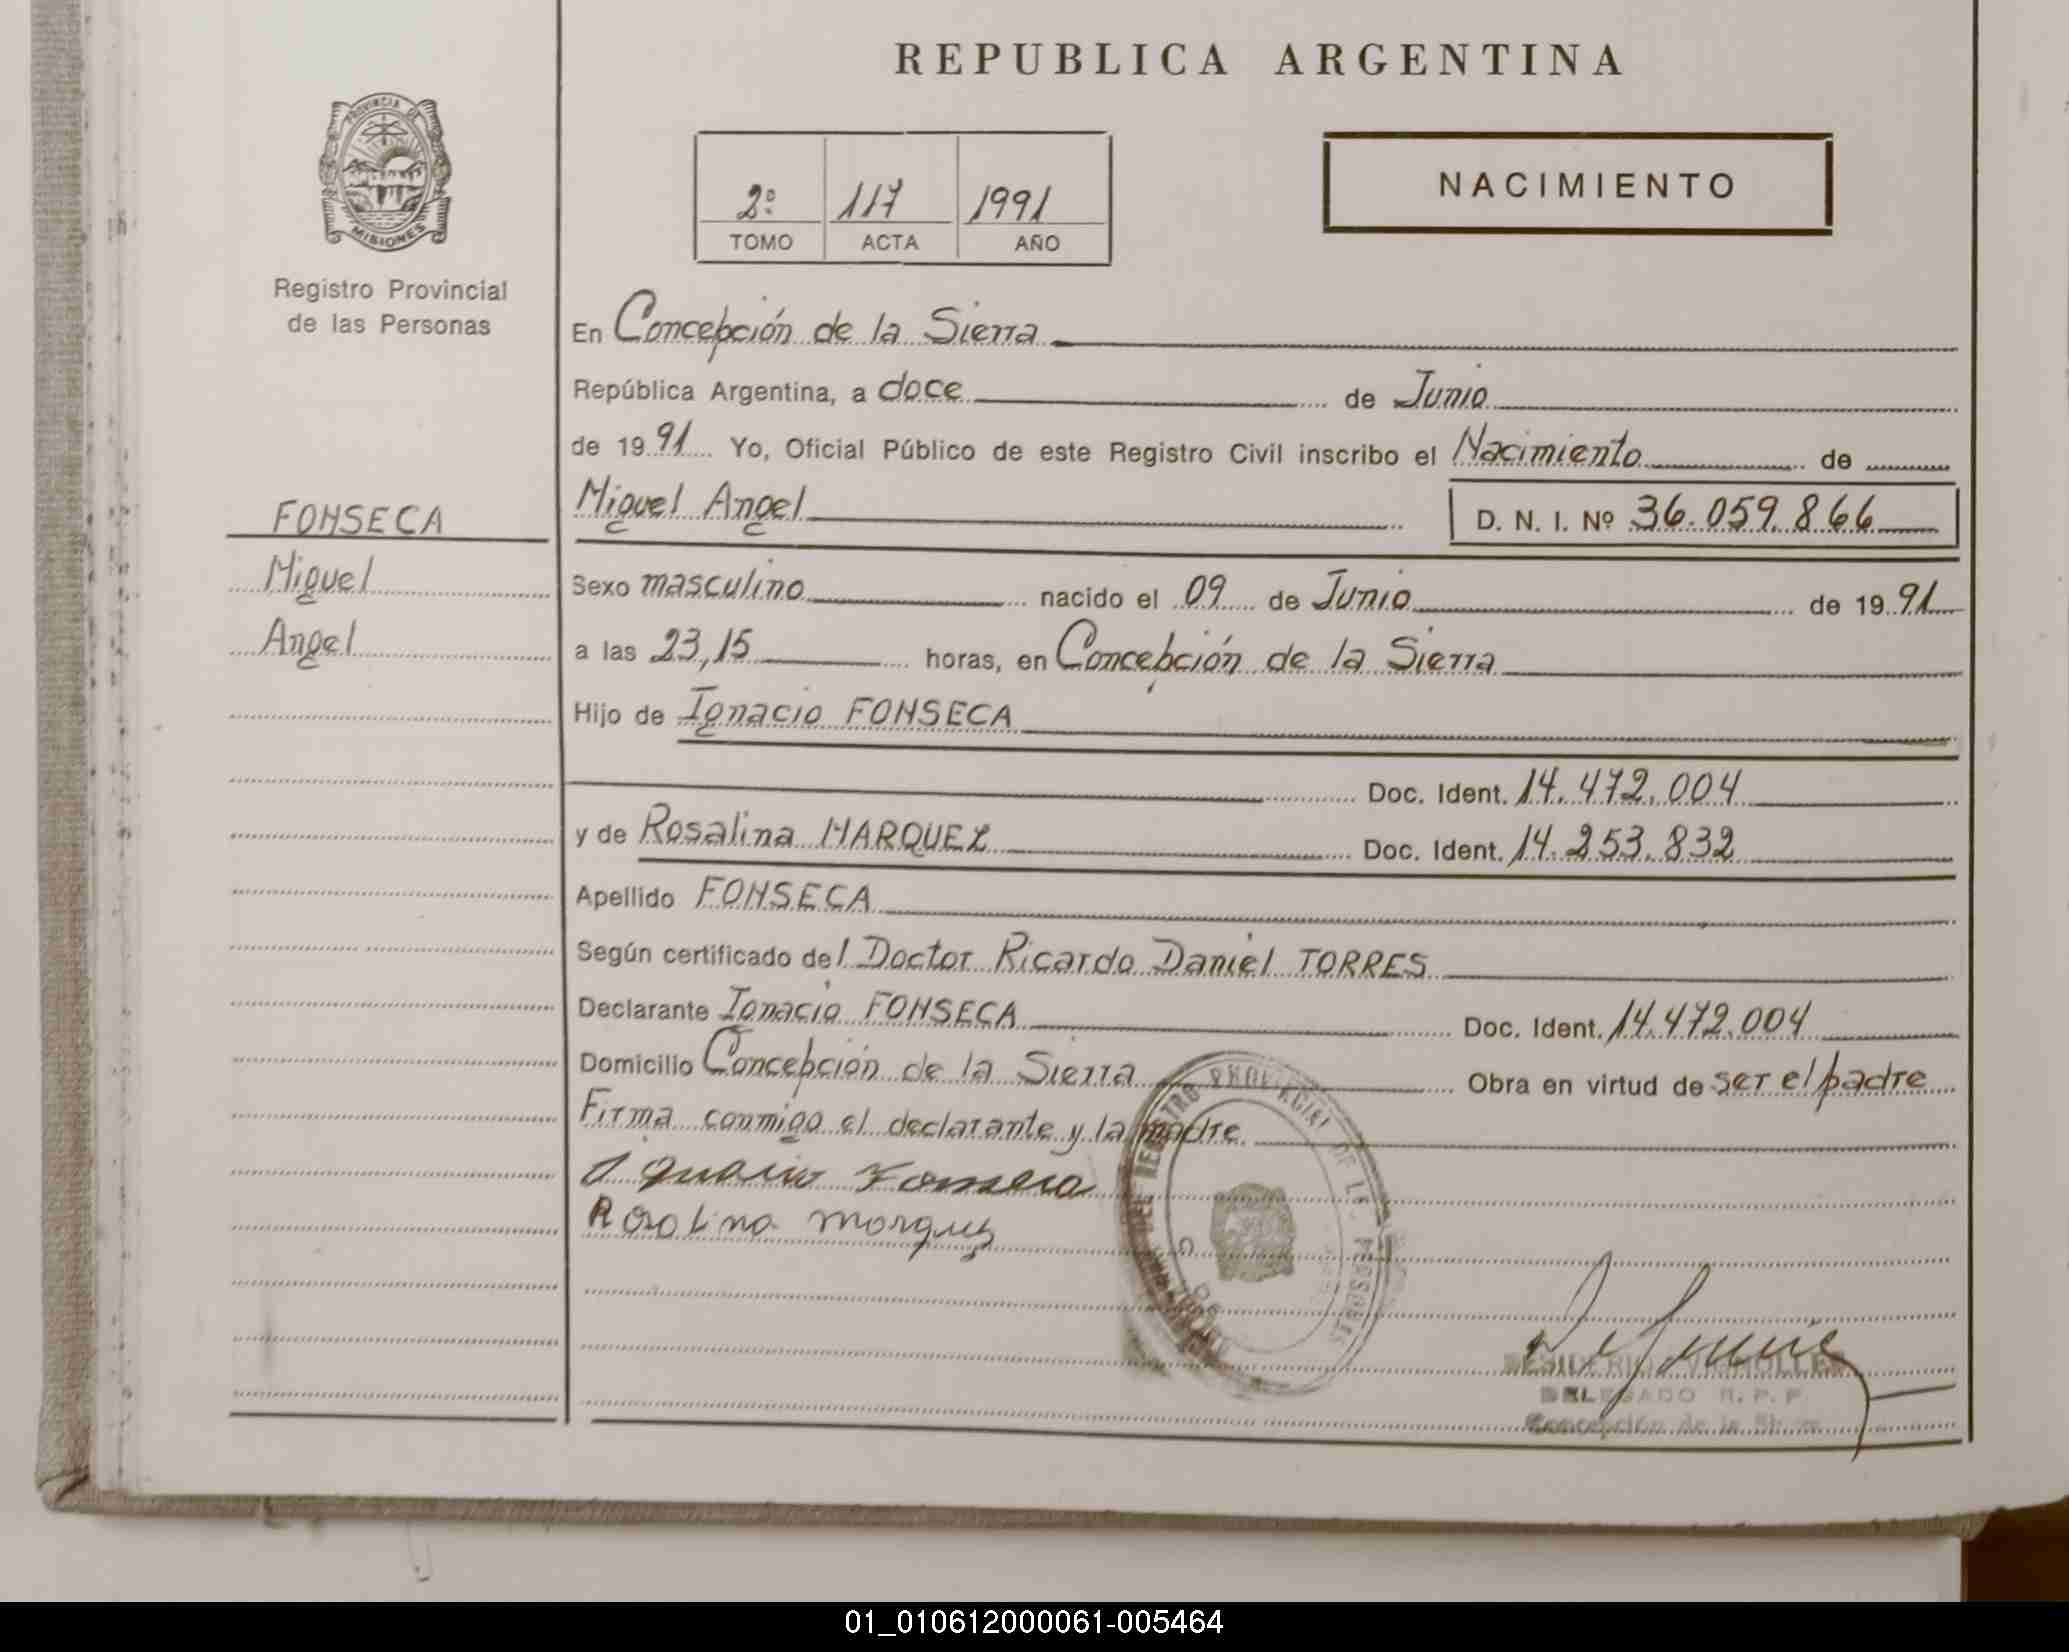 REPUBLICA ARGENTINA
PROVINCIA DE
MISIONES
Registro Provincial
de las Personas
2º 117 1991
TOMO ACTA AÑO
NACIMIENTO
En Concepción de la Sierra
República Argentina, a doce de Junio
de 1991 Yo, Oficial Público de este Registro Civil inscribo el Nacimiento de
Miguel Angel D. N. I. Nº 36.059.866
FONSECA
Miguel
Angel
Sexo masculino nacido el 09 de Junio de 1991
a las 23,15 horas, en Concepción de la Sierra
Hijo de Ignacio FONSECA
Doc. Ident. 14.472.004
y de Rosalina MARQUEZ Doc. Ident. 14.253.832
Apellido FONSECA
Según certificado del Doctor Ricardo Daniel TORRES
Declarante Ignacio FONSECA Doc. Ident. 14.472.004
Domicilio Concepción de la Sierra Obra en virtud de ser el padre
Firma conmigo el declarante y la madre
Ignacio Fonseca
Rosalina Marquez
REGISTRO PROVINCIAL DE LAS PERSONAS
DESIDERIO
DELEGADO R. P. P.
Concepción de la Sierra
01_010612000061-005464